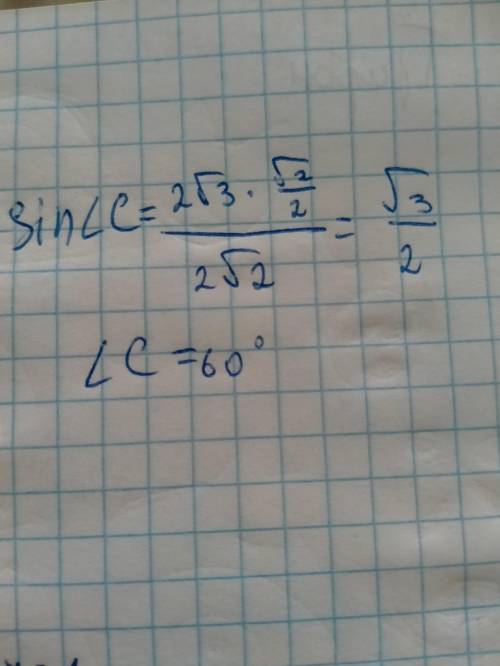 sin∠C = (2√3 · √2/2) / (2√2) = √3/2
∠C = 60°